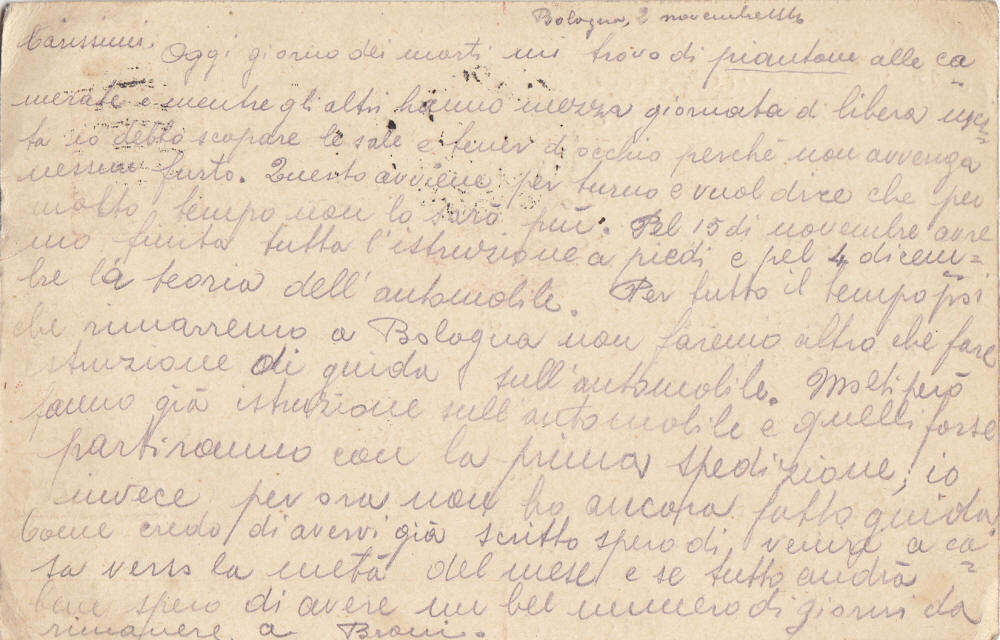 Bologna, 2 novembre 1916
Carissimi.
Oggi giorno dei morti mi trovo di piantone alle ca=
merate e mentre gli altri hanno mezza giornata di libera usci=
ta io debbo scopare le sale e tener d'occhio perché non avvenga
nessun furto. Questo avviene per turno e vuol dire che per
molto tempo non lo sarò più. Pel 15 di novembre avre
mo finita tutta l'istruzione a piedi e pel 4 dicem=
bre la teoria dell'automobile. Per tutto il tempo poi
che rimarremo a Bologna non faremo altro che fare
istruzione di guida sull'automobile. Molti però
fanno già istruzione sull'automobile e quelli forse
partiranno con la prima spedizione; io
invece per ora non ho ancora fatto guida.
Come credo di avervi già scritto spero di venire a ca=
sa verso la metà del mese e se tutto andrà
bene spero di avere un bel numero di giorni da
rimanere a Broni.